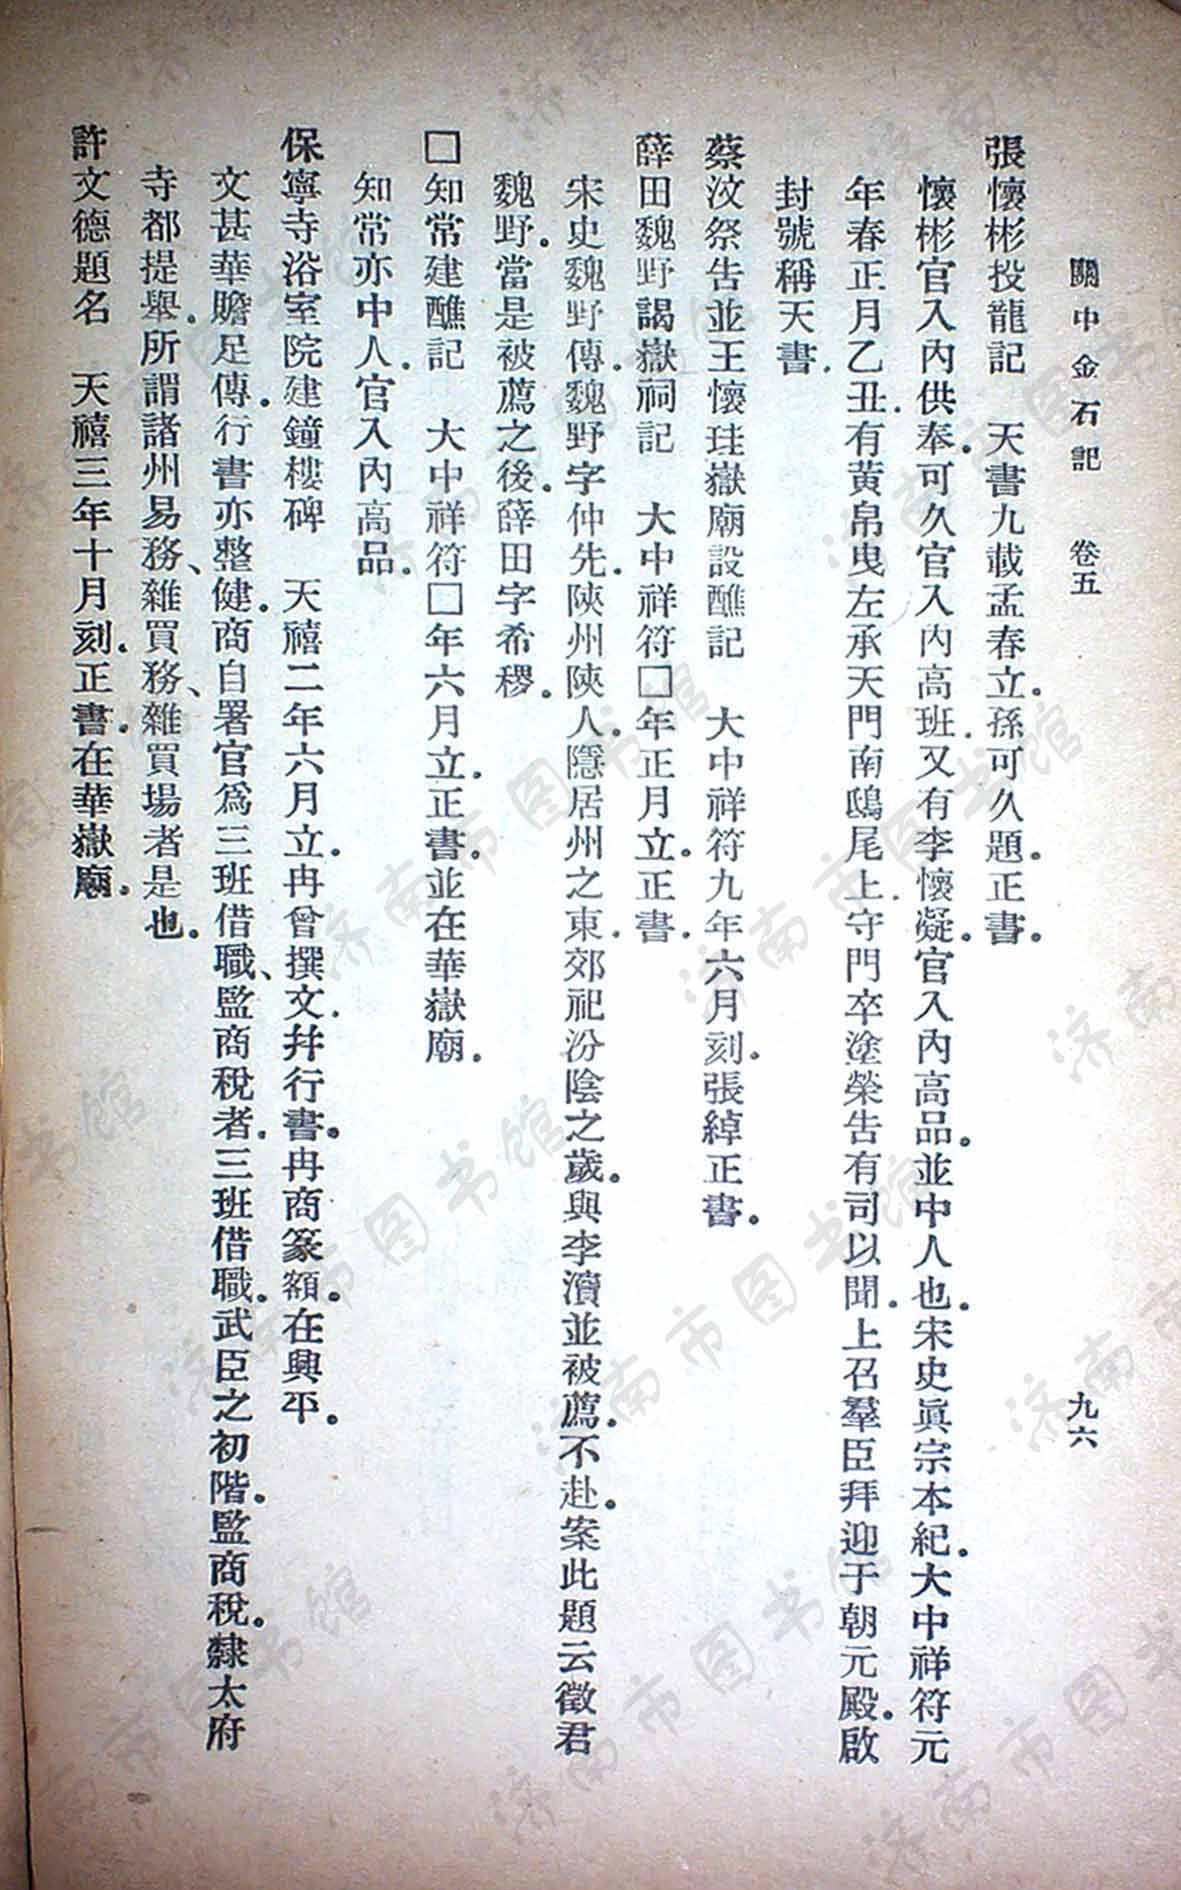 關中金石記　卷五　九六
張懷彬投龍記　天書九載孟春立．孫可久題．正書．
懷彬官入內供奉．可久官入內高班．又有李懷凝．官入內高品．並中人也．宋史眞宗本紀．大中祥符元
年春正月乙丑．有黃帛曳左承天門南鴟尾上．守門卒塗榮告有司以聞．上召羣臣拜迎于朝元殿．啟
封號稱天書．
蔡汶祭告並王懷珪嶽廟設醮記　大中祥符九年六月刻．張綽正書．
薛田魏野謁嶽祠記　大中祥符□年正月立．正書．
宋史魏野傳．魏野字仲先．陝州陝人．隱居州之東．郊祀汾陰之歲．與李瀆並被薦．不赴．案此題云徵君
魏野．當是被薦之後．薛田字希稷．
□知常建醮記　大中祥符□年六月立．正書．並在華嶽廟．
知常亦中人．官入內高品．
保寧寺浴室院建鐘樓碑　天禧二年六月立．冉曾撰文．幷行書．冉商篆額．在興平．
文甚華贍足傳．行書亦整健．商自署官爲三班借職、監商稅者．三班借職．武臣之初階．監商稅．隸太府
寺都提舉．所謂諸州易務、雜買務、雜買場者是也．
許文德題名　天禧三年十月刻．正書．在華嶽廟．
济南市图书馆